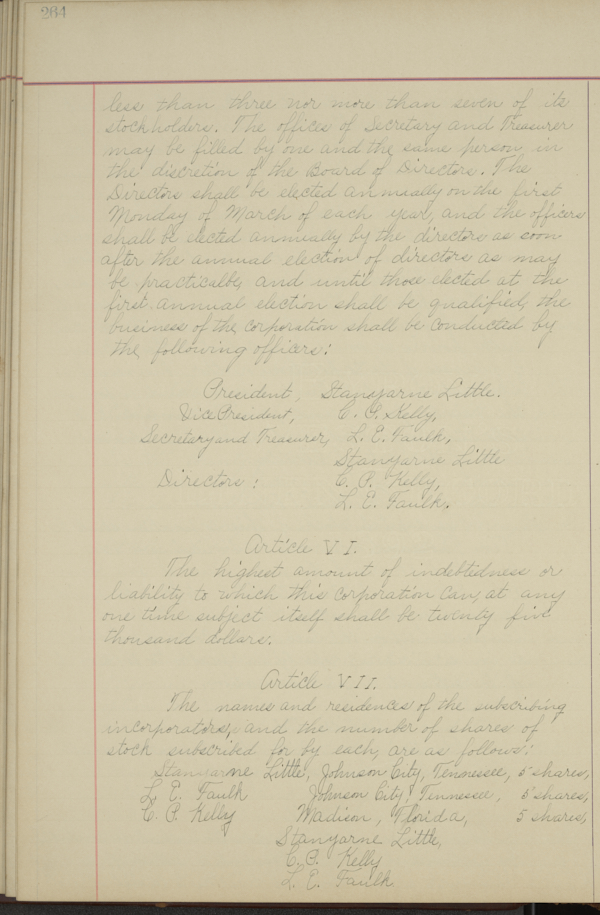 264
less than three nor more than seven of its
stockholders. The offices of Secretary and Treasurer
may be filled by one and the same person, in
the discretion of the Board of Directors. The
Directors shall be elected annually on the first
Monday of March of each year, and the officers
shall be elected annually by the directors as soon
after the annual election of directors as may
be practicable, and until those elected at the
first annual election shall be qualified, the
business of the corporation shall be conducted by
the following officers:
President, Stanyarne Little.
Vice President, C. P. Kelly,
Secretary and Treasurer, L. E. Faulk,
Stanyarne Little
Directors: C. P. Kelly,
L. E. Faulk.
Article VI.
The highest amount of indebtedness or
liability to which this corporation can, at any
one time subject itself shall be twenty five
thousand dollars.
Article VII.
The names and residences of the subscribing
incorporators, and the number of shares of
stock subscribed for by each, are as follows:
Stanyarne Little, Johnson City, Tennessee, 5 shares,
L. E. Faulk Johnson City, Tennessee, 5 shares,
C. P. Kelly Madison, Florida, 5 shares,
Stanyarne Little,
C. P. Kelly
L. E. Faulk